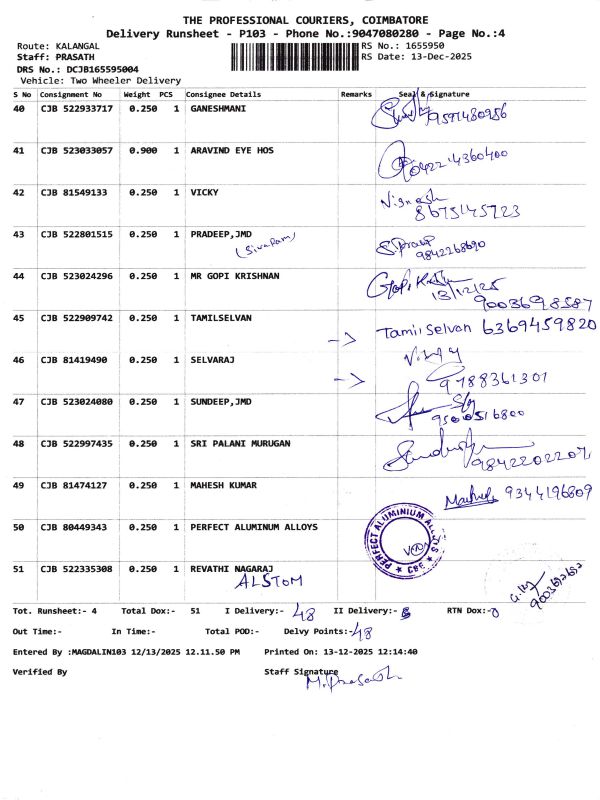 THE PROFESSIONAL COURIERS, COIMBATORE
Delivery Runsheet - P103 - Phone No.:9047080280 - Page No.:4
Route: KALANGAL
RS No.: 1655950
Staff: PRASATH
RS Date: 13-Dec-2025
DRS No.: DCJB165595004
Vehicle: Two Wheeler Delivery
S No Consignment No Weight PCS Consignee Details Remarks Seal & Signature
40 CJB 522933717 0.250 1 GANESHMANI
9591480986
41 CJB 523033057 0.900 1 ARAVIND EYE HOS
04224360400
42 CJB 81549133 0.250 1 VICKY Vignesh
8675145723
43 CJB 522801515 0.250 1 PRADEEP,JMD
(Sivaram)
9842268690
44 CJB 523024296 0.250 1 MR GOPI KRISHNAN
13/12/25
9003698587
45 CJB 522909742 0.250 1 TAMILSELVAN
-> Tamil Selvan 6369459820
46 CJB 81419490 0.250 1 SELVARAJ
-> 9788361301
47 CJB 523024080 0.250 1 SUNDEEP,JMD
9500516800
48 CJB 522997435 0.250 1 SRI PALANI MURUGAN
9842202207
49 CJB 81474127 0.250 1 MAHESH KUMAR
9344196809
50 CJB 80449343 0.250 1 PERFECT ALUMINUM ALLOYS
PERFECT ALUMINIUM ALLOYS
★ CBE ★
51 CJB 522335308 0.250 1 REVATHI NAGARAJ
ALSTOM
Tot. Runsheet:- 4 Total Dox:- 51 I Delivery:- 48 II Delivery:- RTN Dox:-0
Out Time:- In Time:- Total POD:- Delvy Points:-48
Entered By :MAGDALIN103 12/13/2025 12.11.50 PM Printed On: 13-12-2025 12:14:40
Verified By Staff Signature
M. Prasath